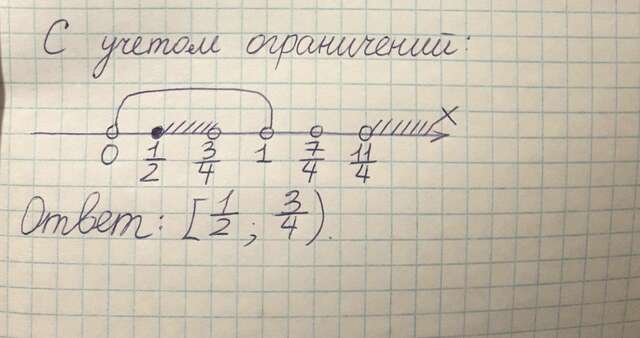 С учетом ограничений:
x
0 1/2 3/4 1 7/4 11/4
Ответ: [1/2 ; 3/4).